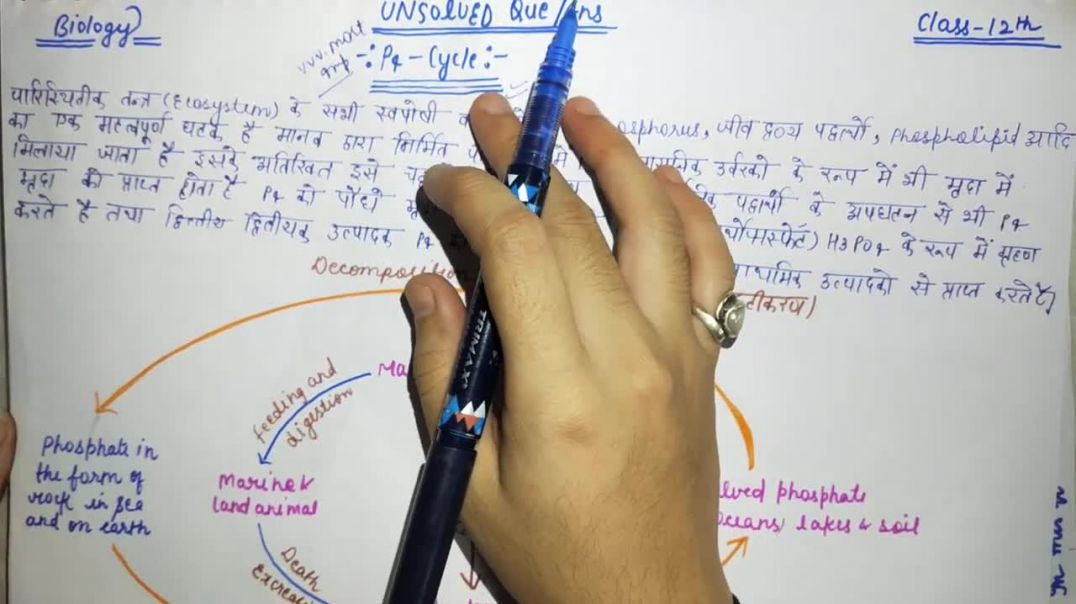 Biology
UNSOLVED Que
Class-12th
vvv. most
-: P4 - Cycle :-
पारिस्थितीक तन्त्र (Ecosystem) के सभी स्वपोषी
osphorus, जीव द्रव्य पदार्थो, Phospholipid आदि
का एक महत्वपूर्ण घटक है मानव द्वारा निर्मित
उर्वरको के रूप में भी मृदा में
मिलाया जाता है इसके अतिरिक्त इसे
पदार्थो के अपघटन से भी P4
मृदा को प्राप्त होता है P4 को पौधो
H3PO4 के रूप में ग्रहण
करते है तथा द्वित्तीय द्वितीयक उत्पादक P4
उत्पादको से प्राप्त करते है
Decomposition
टीकरण)
Feeding and
digestion
Phosphate in
the form of
rock in sea
and on earth
Marine &
land animal
lved phosphate
oceans, lakes & soil
Death
TRIMAX